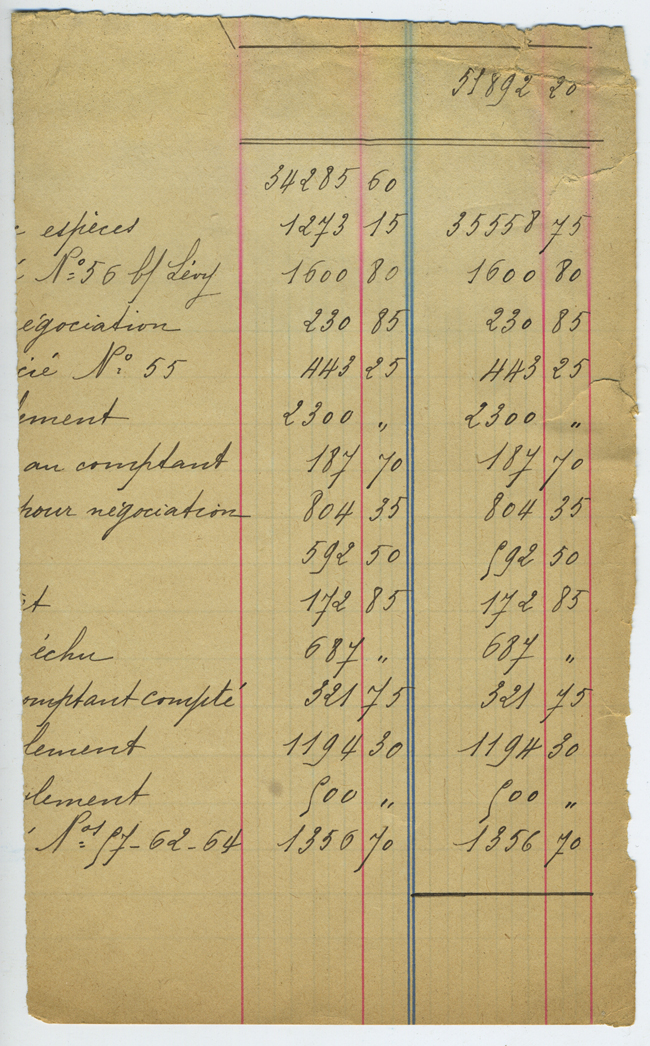 51892 20
34285 60
espèces 1273 15 35558 75
Nº 56 b/ Lévy 1600 80 1600 80
égociation 230 85 230 85
cié Nº 55 443 25 443 25
lement 2300 " 2300 "
au comptant 187 70 187 70
pour négociation 804 35 804 35
592 50 592 50
t 172 85 172 85
échu 687 " 687 "
omptant compté 321 75 321 75
lement 1194 30 1194 30
lement 500 " 500 "
Nos 57-62-64 1356 70 1356 70